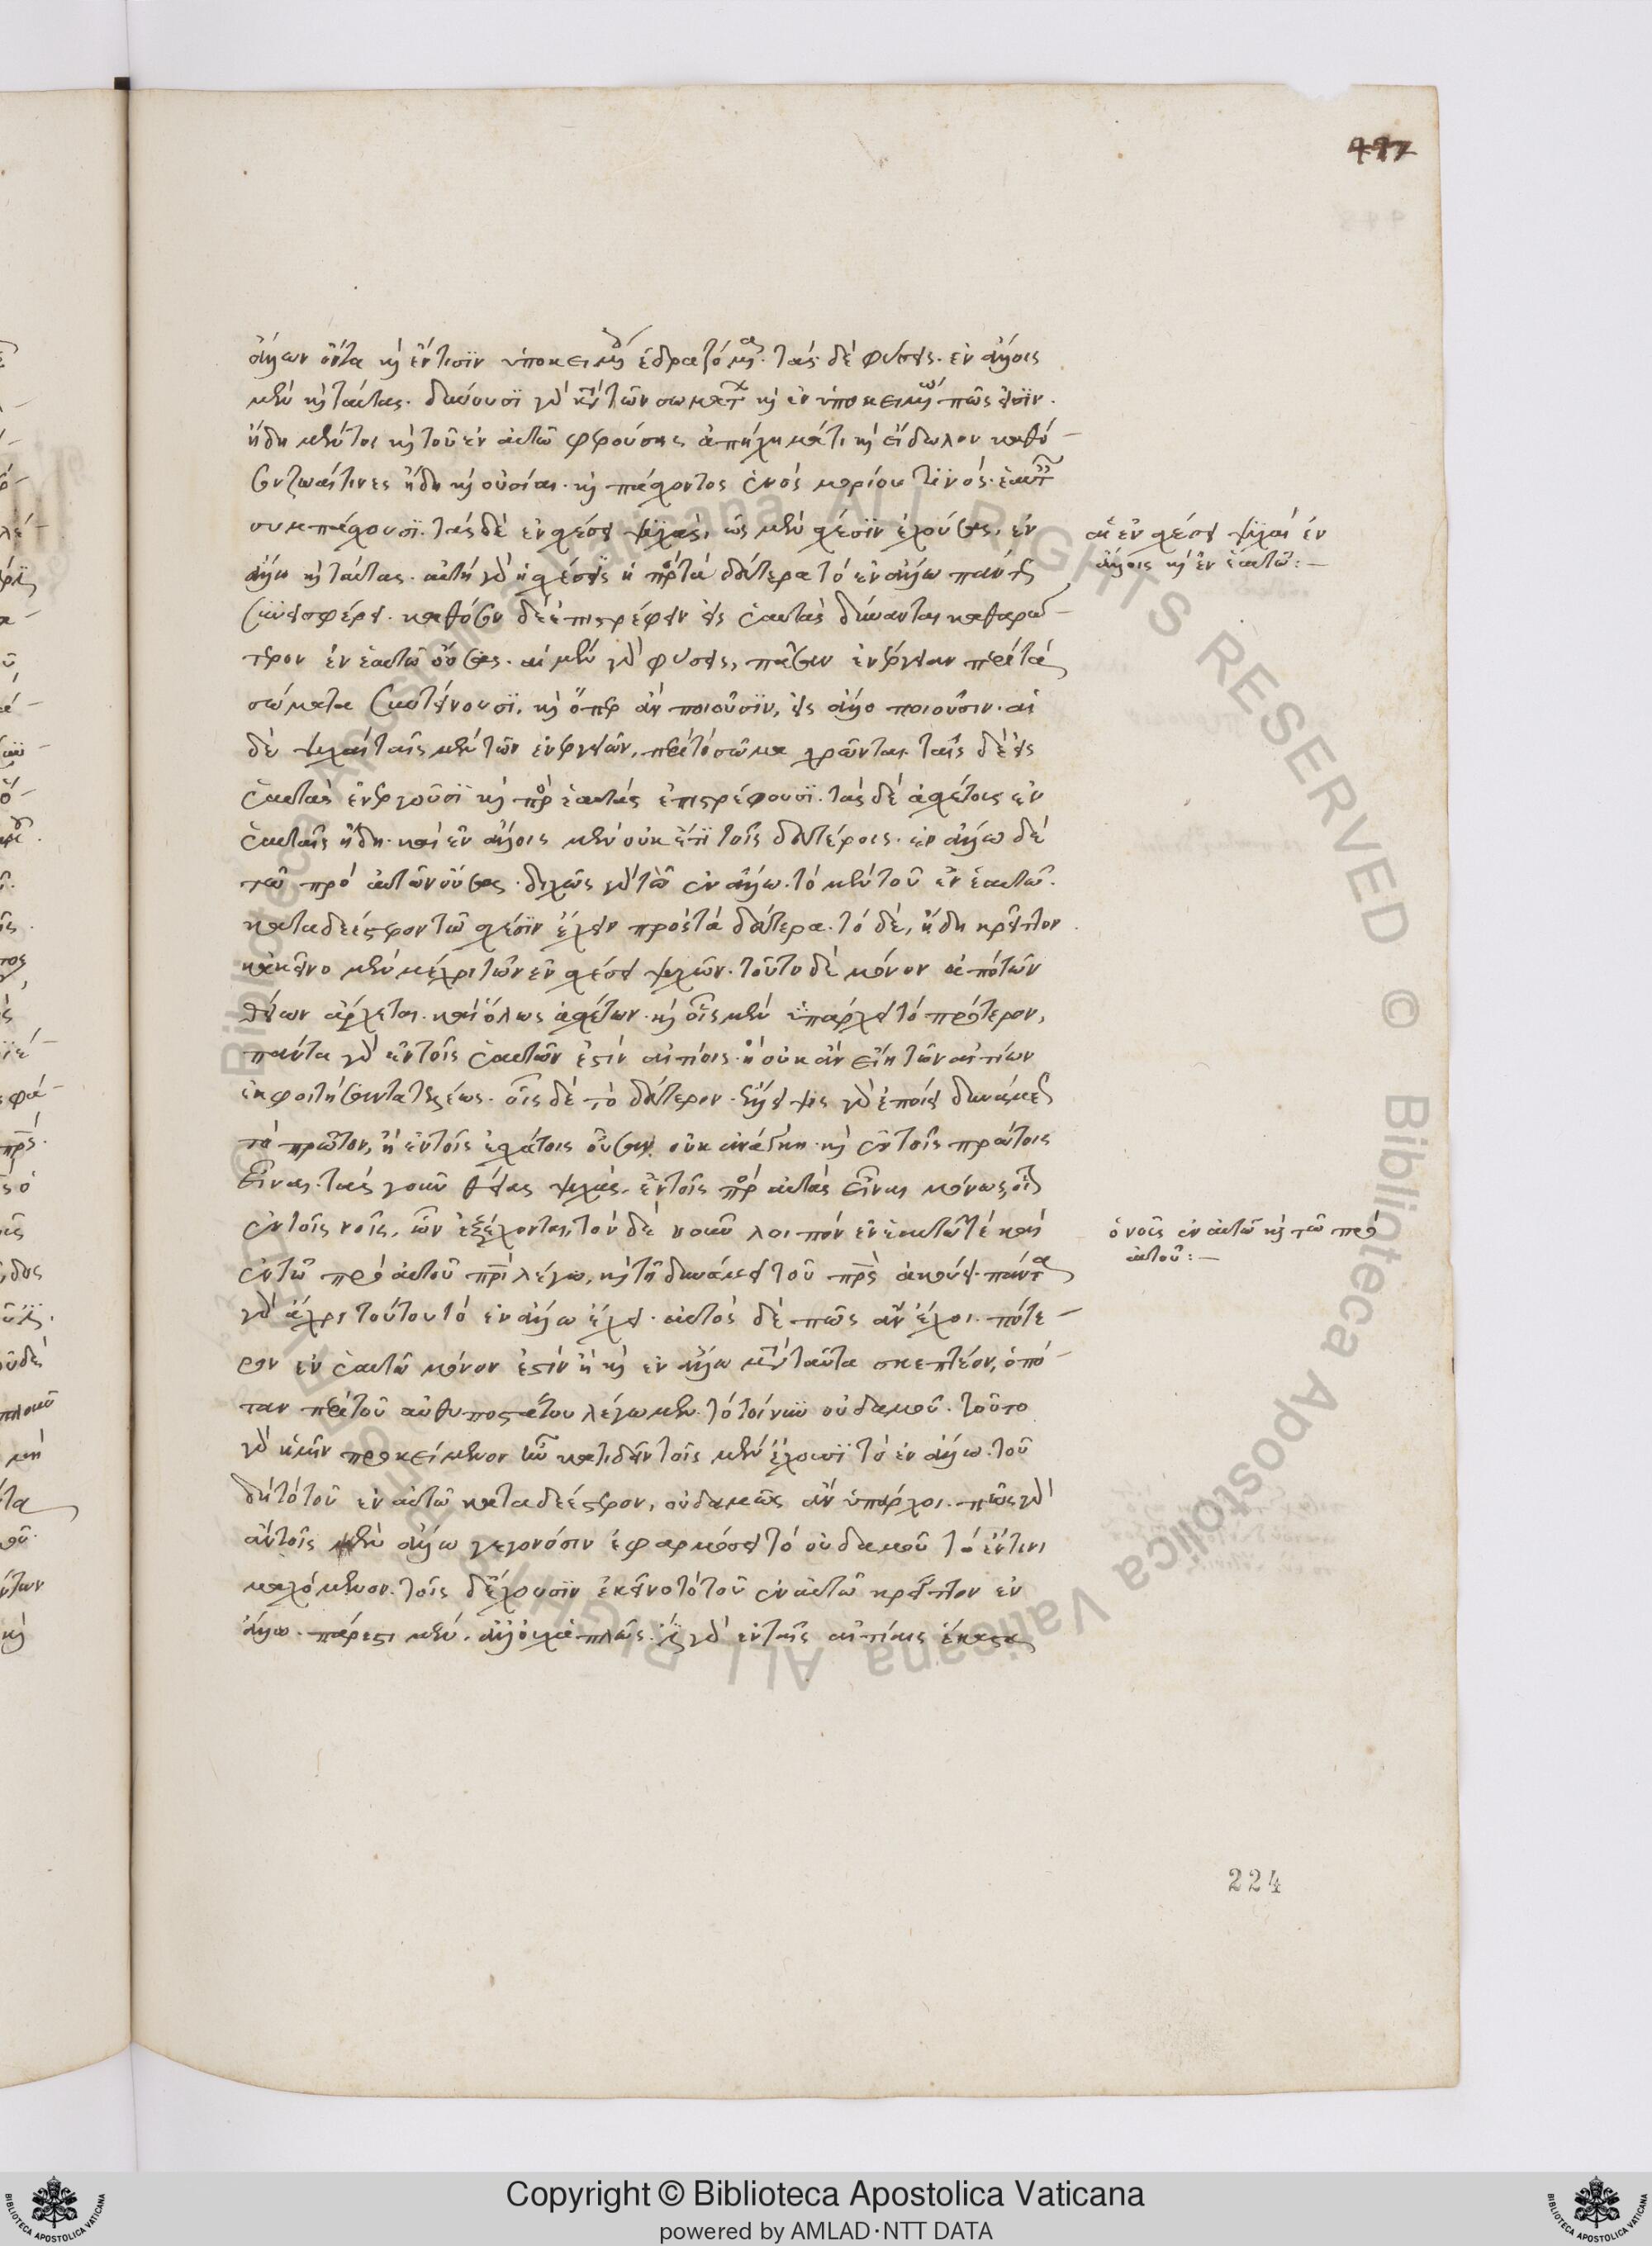 477
ἄλλων ὄντα καὶ ἔν τισϊν ὑποκειμένοις ἑδραζόμενα. τὰς δὲ φύσεις. ἐν ἄλλοις
μὲν καὶ ταύτας. δύνουσϊ γὰρ κατὰ τῶν σωμάτων καὶ ἐν ὑποκειμένω πῶς εἰσϊν.
ἤδη μέντοι καὶ τοῦ ἐν αὐτῶ φερούσας ἀπήχημά τι καὶ εἴδωλον καθό-
σον ζωαί τινες ἤδη καὶ οὐσίαι. καὶ πάσχοντος ἑνὸς μορίου τϊνός. ἑαυταῖς
συμπάσχουσϊ. τὰς δὲ ἐν σχέσει ψυχὰς, ὡς μὲν σχέσϊν ἐχούσας, ἐν
ἄλλω καὶ ταύτας. αὐτὴ γὰρ ἡ σχέσις ἡ πρὸς τὰ δεύτερα τὸ ἐν ἄλλω πάντως
συνεισφέρει. καθόσον δὲ ἐπιστρέφειν εἰς ἑαυτὰς δύνανται καθαρώ-
τερον ἐν ἑαυτῶ οὔσας. αἱ μὲν γὰρ φύσεις, πᾶσαν ἐνέργειαν περὶ τὰ
σώματα συντείνουσϊ, καὶ ὅπερ ἂν ποιοῦσϊν, εἰς ἄλλο ποιοῦσιν. αἱ
δὲ ψυχαὶ ταῖς μὲν τῶν ἐνεργειῶν, περὶ τὸ σῶμα χρῶνται. ταῖς δὲ εἰς
ἑαυτὰς ἐνεργοῦσϊ καὶ πρὸς ἑαυτάς ἐπιστρέφουσϊ. τὰς δὲ ἀσχέτους ἐν
ἑαυταῖς ἤδη. καὶ ἐν ἄλλοις μὲν οὐκ ἔτϊ τοῖς δευτέροις. ἐν ἄλλω δὲ
τῶ πρὸ αὐτῶν οὔσας. διχῶς γὰρ τὸ ἐν ἄλλω. τὸ μὲν τοῦ ἐν ἑαυτῶ.
καταδεέστερον τῶ σχέσϊν ἔχειν πρὸς τὰ δεύτερα. τὸ δὲ, ἤδη κρεῖττον
κἀκεῖνο μὲν μέχρι τῶν ἐν σχέσει ψυχῶν. τοῦτο δὲ μόνον ἀπὸ τῶν
θείων ἄρχεται. καὶ ὅλως ἀσχέτων. καὶ οἷς μὲν ὑπάρχει τὸ πρότερον,
πάντα γὰρ ἐν τοῖς ἑαυτῶν ἐστὶν αἰτίοις. ἢ οὐκ ἂν εἴη τῶν αἰτίων
ἐκφοιτήσαντα εὐθέως. οἷς δὲ τὸ δεύτερον. ἔλλειψις γὰρ ἐποίει δυνάμεως
τὸ πρῶτον, ἣ ἐν τοῖς ἐσχάτοις οὖσαν οὐκ ἀνάγκη. καὶ ἐν τοῖς πρώτοις
εἶναι. τὰς γοῦν θείας ψυχὰς, ἐν τοῖς πρὸ αὐτὰς εἶναι μόνως, οἷον
ἐν τοῖς νοῖς, ὧν ἐξέχονται, τὸν δὲ νοῦν λοιπὸν ἐν ἑαυτῶ τέ καὶ
ἐν τῶ πρὸ αὐτοῦ πρὶ λέγω, καὶ τῆ δυνάμει τοῦ πρς ἀκούει. πάντα
γὰρ ἄχρι τούτου τὸ ἐν ἄλλω ἔχει. αὐτὸς δὲ πῶς ἂν ἔχοι. πότε-
ρον ἐν ἑαυτῶ μόνον ἐστὶν ἢ καὶ ἐν ἄλλω μετὰ ταῦτα σκεπτέον, ὁπό-
ταν περὶ τοῦ αὐθυποστάτου λέγωμεν. τὸ τοίνυν οὐδαμοῦ. τοῦτο
γὰρ ἡμῖν προκείμενον νῦν κατιδεῖν τοῖς μὲν ἔχουσϊ τὸ ἐν ἄλλω. τοῦ
δὴ τὸ τοῦ ἐν αὐτῶ καταδεέστερον, οὐδαμῶς ἂν ὑπάρχοι. πῶς γὰρ
ἂν τοῖς ἐν ἄλλω γεγονόσιν ἐφαρμόσει τὸ οὐδαμοῦ τὸ ἔν τινι
μαχόμενον. τοῖς δ' ἔχουσϊν ἐκεῖνο τὸ τοῦ ἐν αὐτῶ κρεῖττον ἐν
ἄλλω. πάρεστι μὲν. ἀλλ' οὐχ ἁπλῶς. ἔστι γὰρ ἐν ταῖς αἰτίαις ἕκαστα
αἱ ἐν σχέσει ψυχαὶ ἐν
ἄλλοις καὶ ἐν ἑαυτῶ:—
ὁ νοῦς ἐν αὐτῶ καὶ τῶ πρὸ
αὐτοῦ:—
224
© Biblioteca Apostolica Vaticana ALL RIGHTS RESERVED © Biblioteca Apostolica Vaticana ALL RIGHTS
Copyright © Biblioteca Apostolica Vaticana
powered by AMLAD·NTT DATA